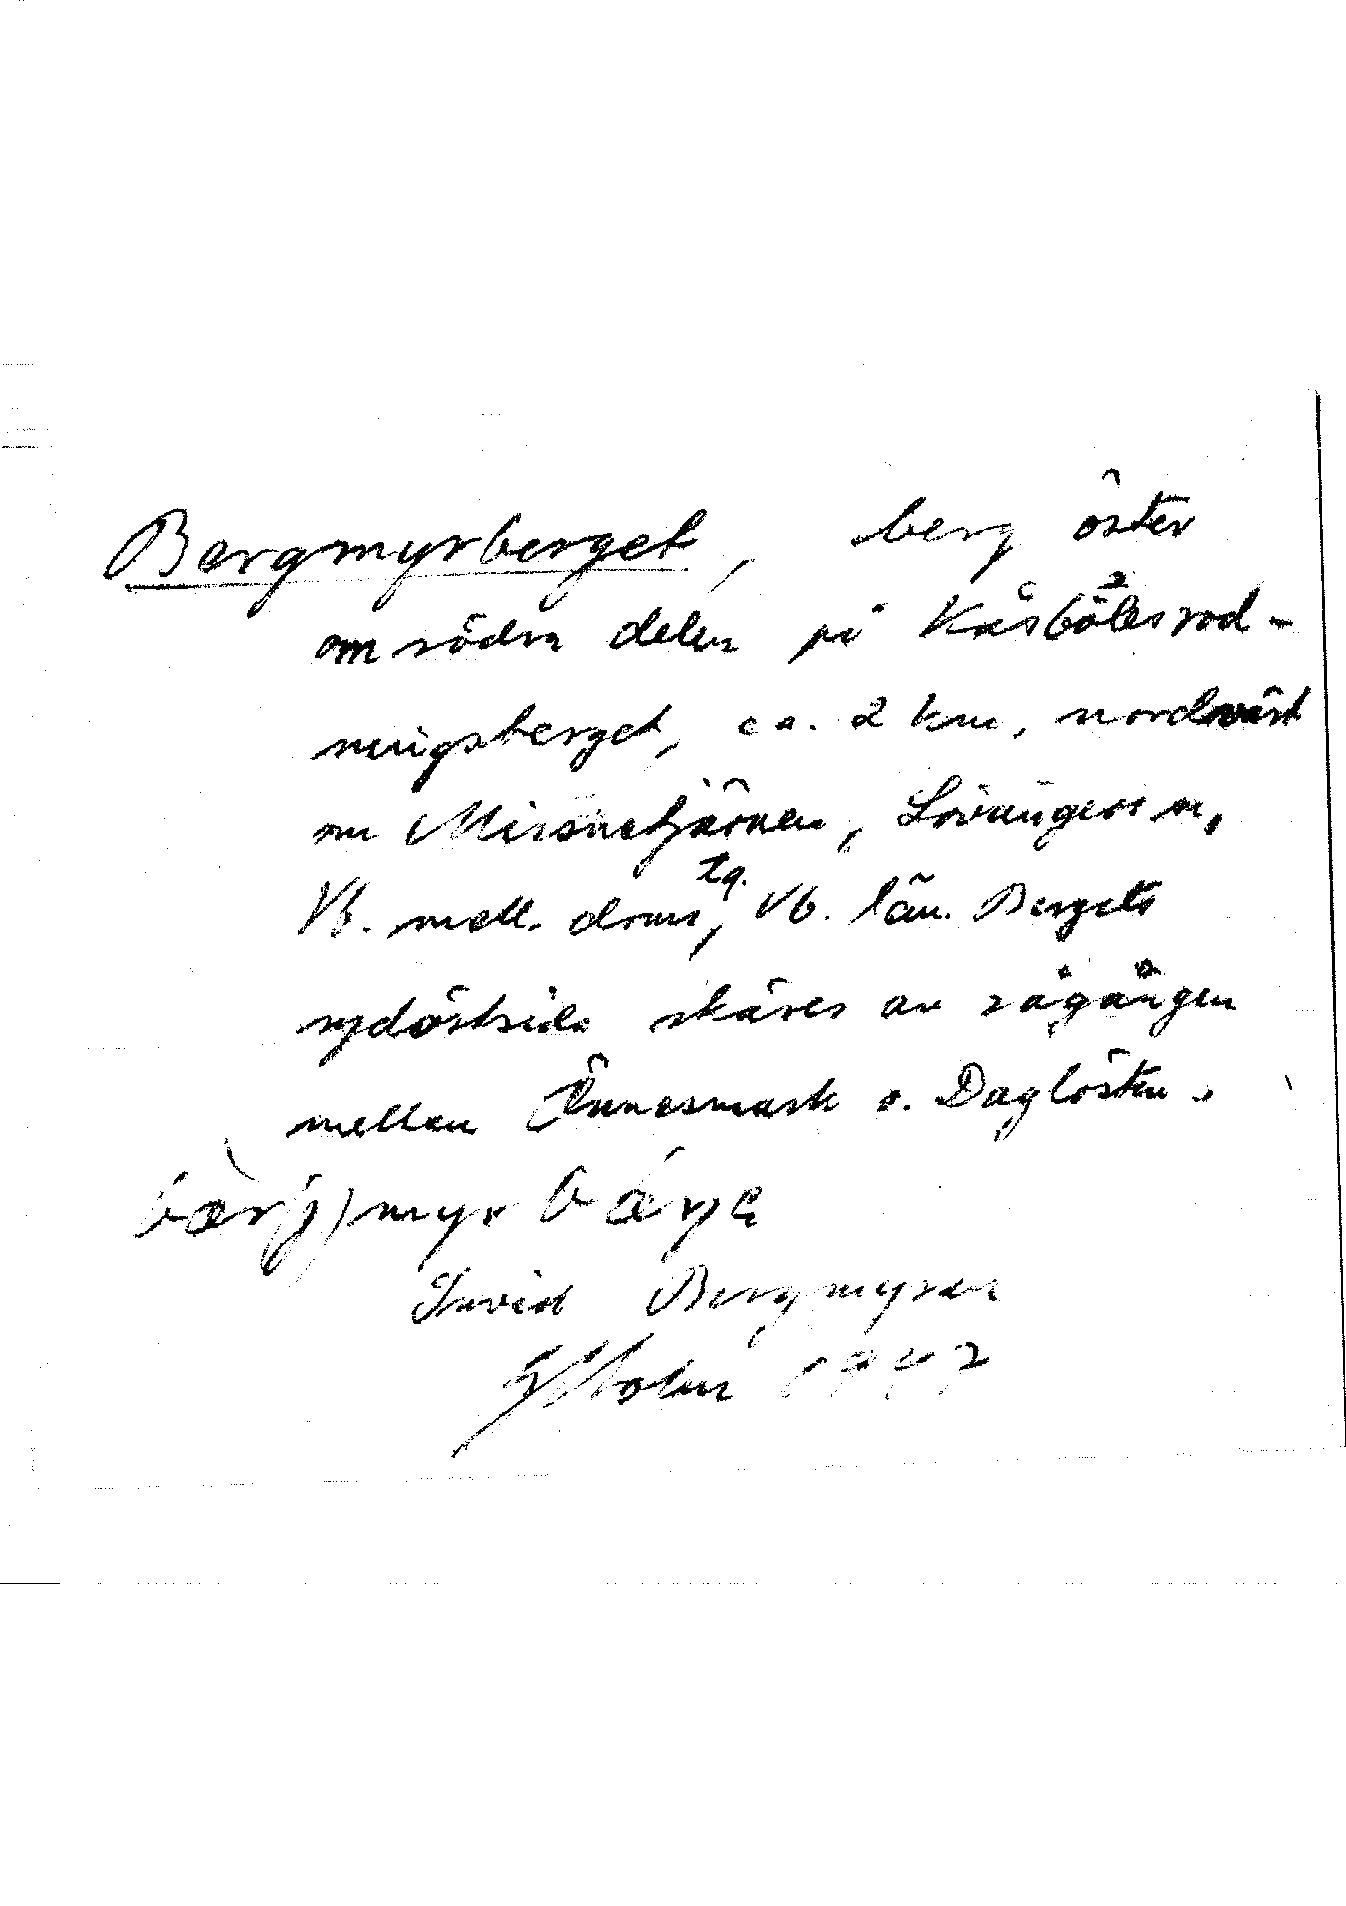 Bergmyrberget, berg öster
om södra delen på Kåsbölesrod-
ningsberget, ca. 2 km, nordväst
om Missnetjärnen, Lövångers sn,
Vb. mell. doms tg., Vb. län. Bergets
sydöstsida skäres av rågången
mellan Ånnesmark o. Daglösten.
bær(j)myrbærjə
David Bergmyran
Holm 1947